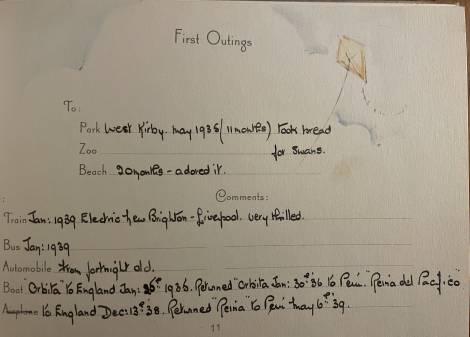 First Outings
To:
Park West Kirby. May 1936 (11 months) Took bread
Zoo for Swans.
Beach 20 months - adored it.
: Comments:
Train Jan: 1939 Electric New Brighton - Liverpool. very thrilled.
Bus Jan: 1939
Automobile from fortnight old.
Boat "Orbita" to England Jan: 1936. Returned "Orbita Jan: 30th '36 to Peru. "Reina del Pacifico"
Aeroplane to England Dec: 13th '38. Returned "Reina" to Peru May 6th '39.
11